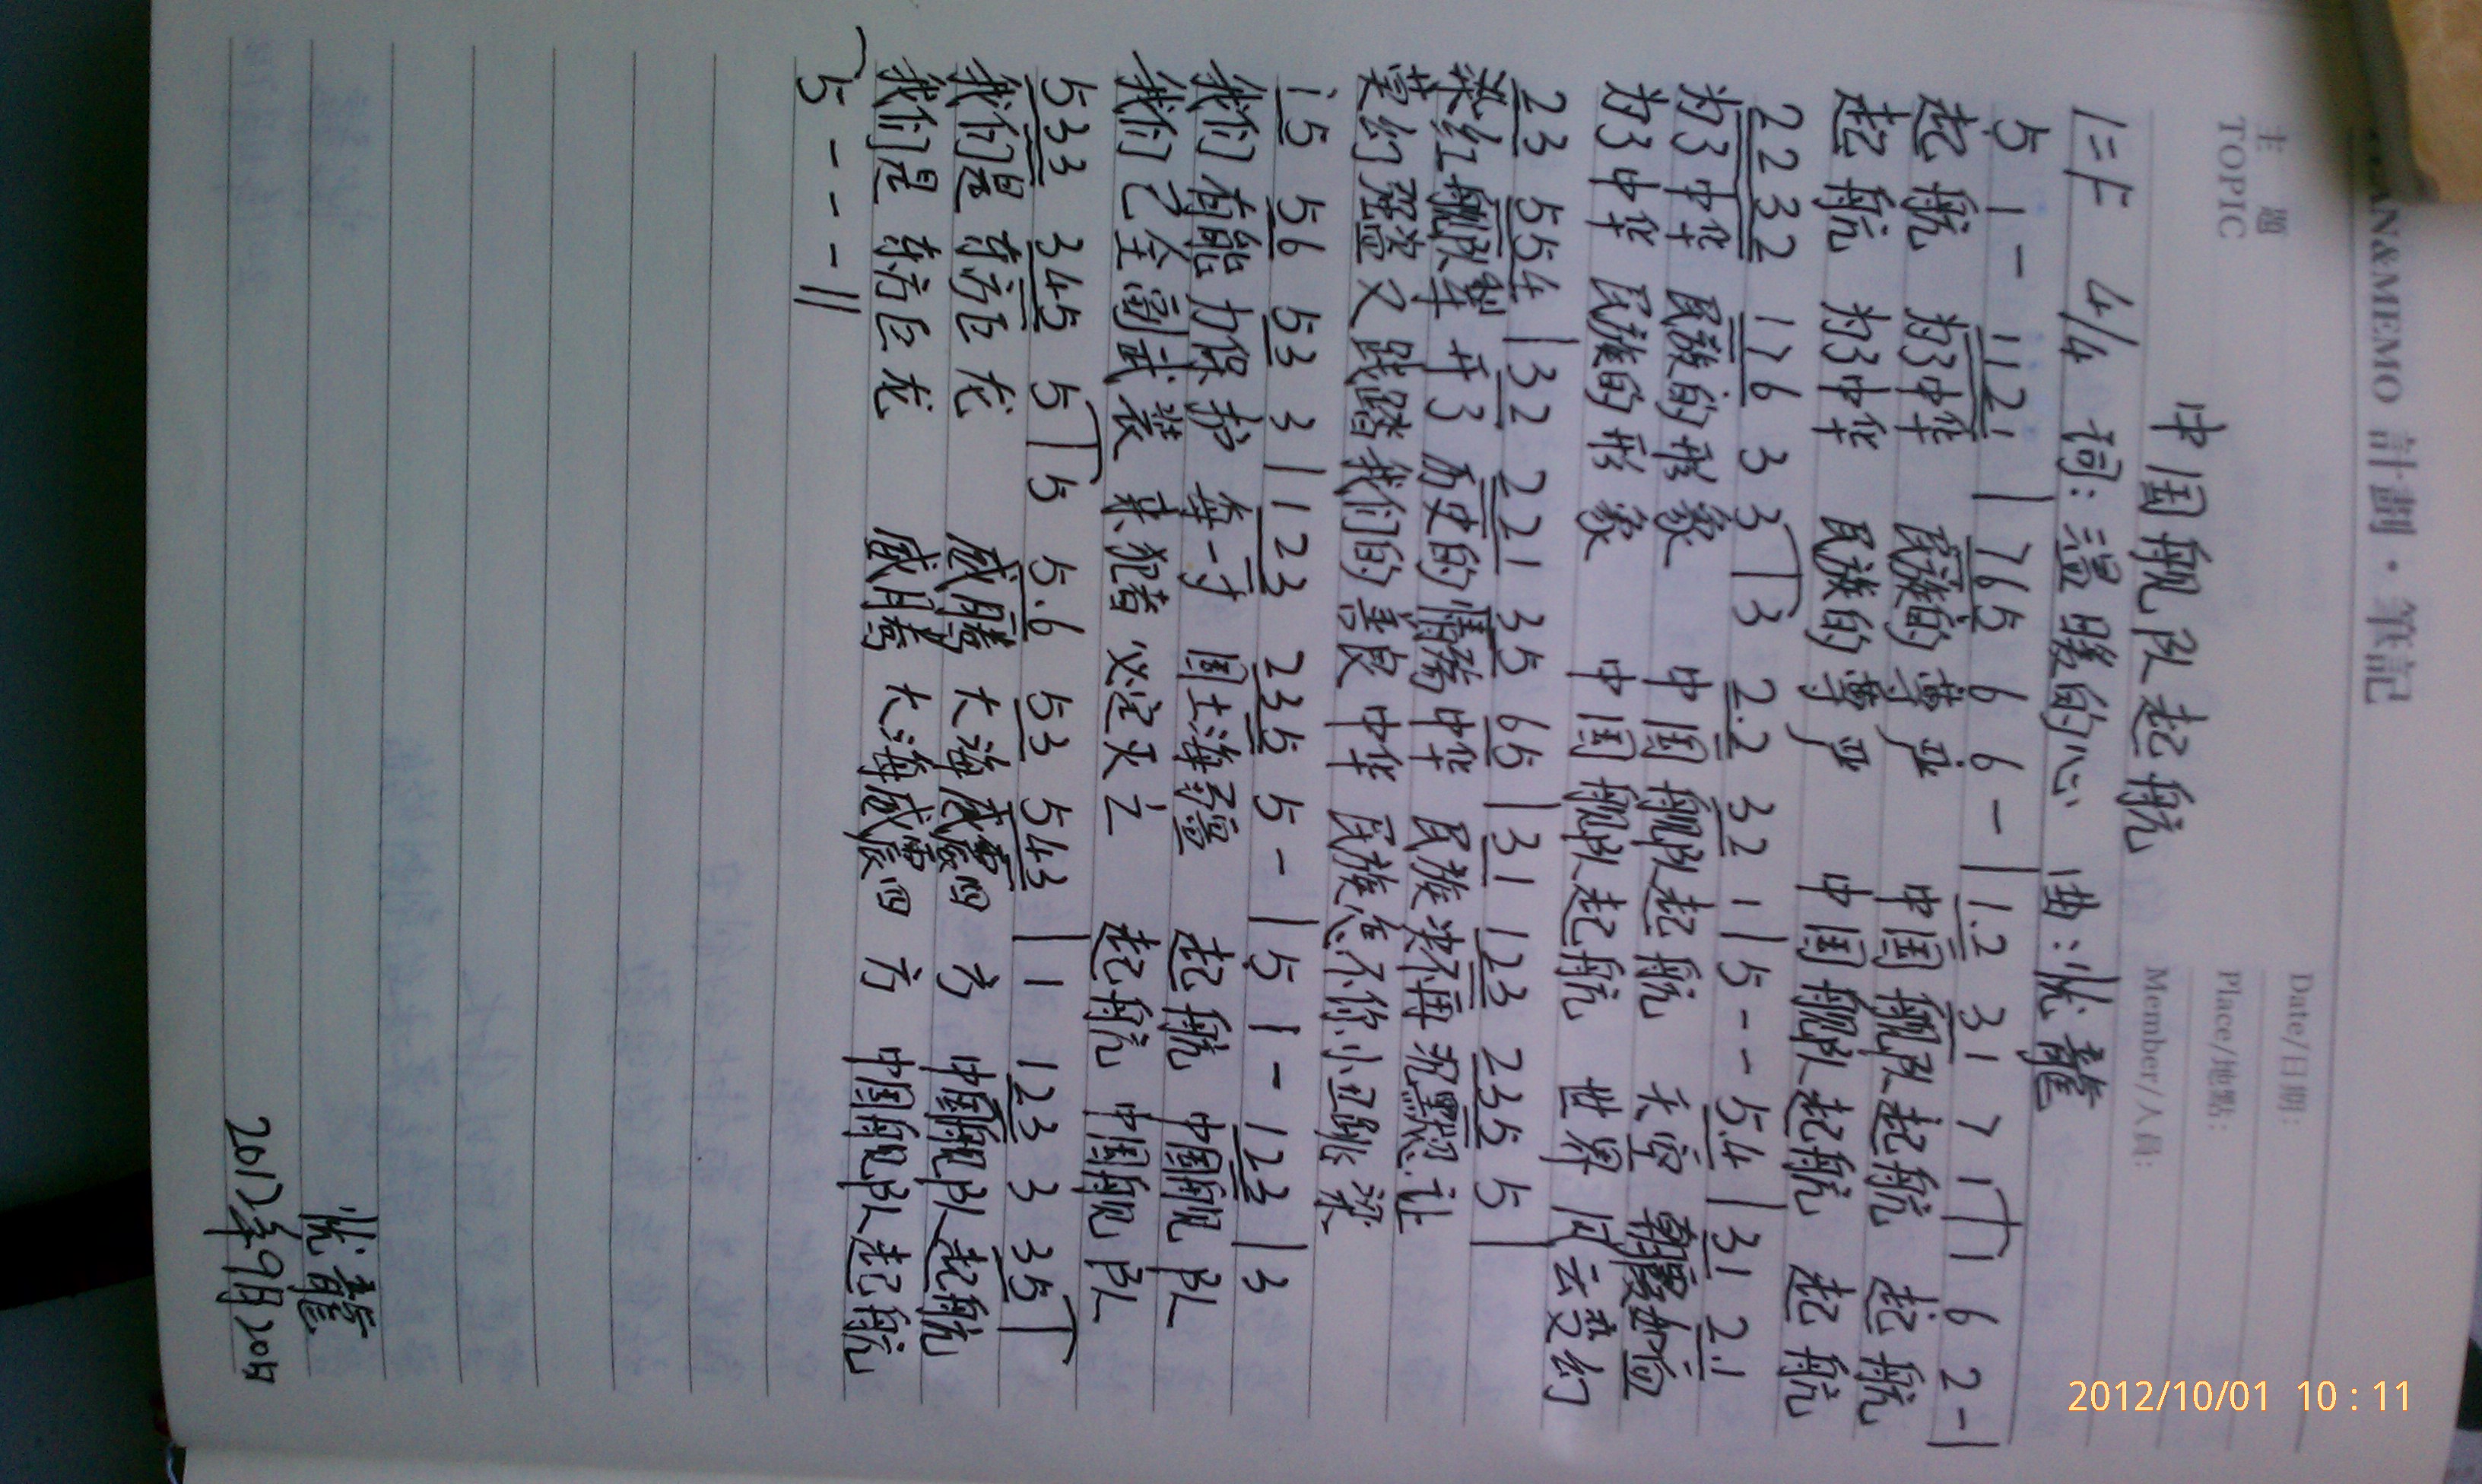 PLAN&MEMO 計劃·筆記
Date/日期:
主題
TOPIC
Place/地點:
Member/人員:
中国舰队起航
1=F 4/4 词:温暖的心 曲:悦龍
5 1 - 1121 | 765 6 6 - | 1.2 31 7 1 | 1 6 2 - |
起航 为了中华 民族的尊严 中国舰队起航 起航
起航 为了中华 民族的尊严 中国舰队起航 起航
2232 176 3 3 | 3 2.2 32 1 | 5 - - 5.4 | 31 2.1
为了中华 民族的形象 中国舰队起航 天空 朝霞如血
为了中华 民族的形象 中国舰队起航 世界 风云变幻
23 554 | 32 221 35 65 | 31 123 235 5 |
染红舰队 开了 历史的 中华 民族决不再沉默忍让
莫幻 又 践踏我们的善良 中华 民族怎不你小丑跳梁
i5 56 53 3 | 123 235 5 - | 5 1 - 123 | 3
我们有能力保护 每一寸 国土海疆 起航 中国舰队
我们已全副武装 来犯者 必定灭亡 起航 中国舰队
533 345 5 | 5 5.6 53 543 | 1 123 3 35 |
我们是 东方巨龙 威腾 大海威震四方 中国舰队起航
我们是 东方巨龙 威腾 大海威震四方 中国舰队起航
5 - - - ||
悦龍
2012年9月20日
2012/10/01 10:11